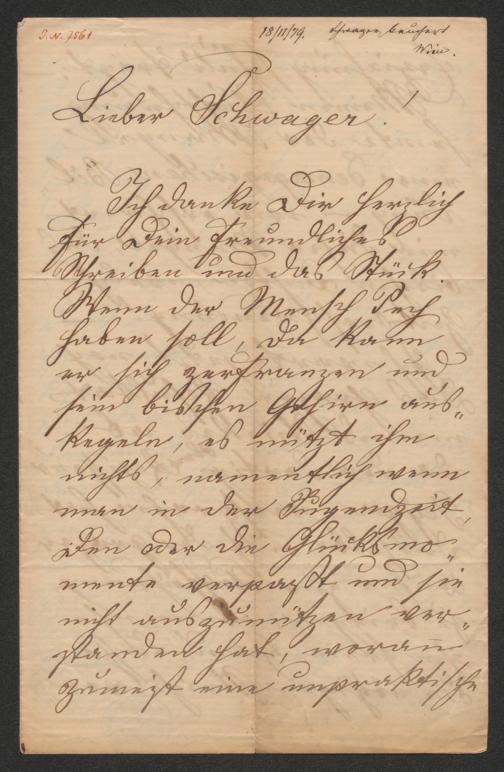 I. N. 7561
18/11/79.
Wien.
Lieber Schwager!
Ich danke Dir herzlich
für Dein freundliches
Schreiben und das Stück.
Wenn der Mensch Pech
haben soll, da kann
er sich zerfranzen und
sein bischen Gehirn aus-
kegeln, es nützt ihm
nichts, namentlich wenn
man in der Jugendzeit
den oder die Glücksmo-
mente verpaßt und sie
nicht auszunützen ver-
standen hat, woran
zumeist eine unpraktische